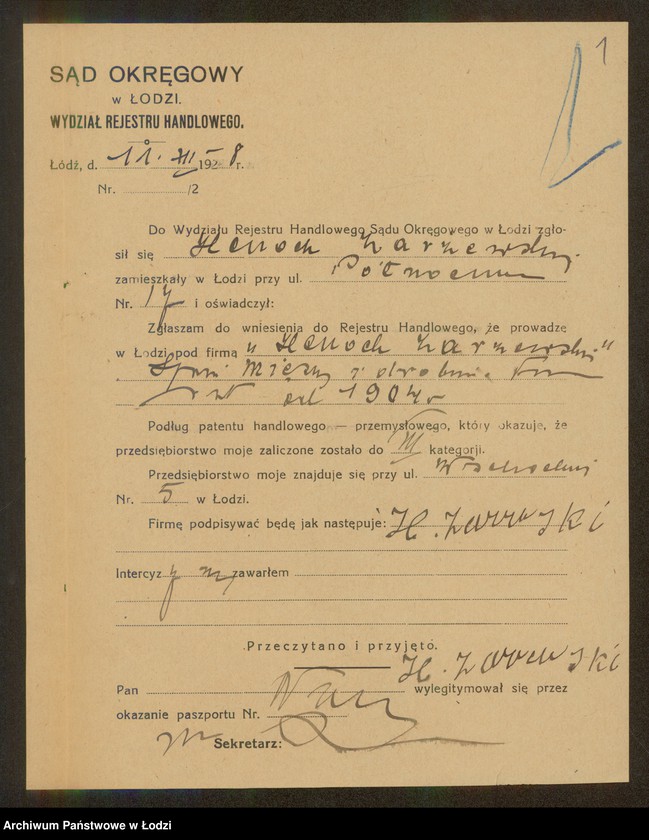 1
SĄD OKRĘGOWY
w ŁODZI.
WYDZIAŁ REJESTRU HANDLOWEGO.
Łódź, d. 11. XII 1928 r.
Nr. /2
Do Wydziału Rejestru Handlowego Sądu Okręgowego w Łodzi zgło-
sił się Henoch Zarzewski
zamieszkały w Łodzi przy ul. Północnej
Nr. 17 i oświadczył:
Zgłaszam do wniesienia do Rejestru Handlowego, że prowadzę
w Łodzi pod firmą „Henoch Zarzewski"
od 1904 r
Podług patentu handlowego — przemysłowego, który okazuje, że
przedsiębiorstwo moje zaliczone zostało do III kategorji.
Przedsiębiorstwo moje znajduje się przy ul. Wschodniej
Nr. 5 w Łodzi.
Firmę podpisywać będę jak następuje: H. Zarzewski
Intercyzy nie zawarłem
Przeczytano i przyjęto.
H. Zarzewski
Pan wylegitymował się przez
okazanie paszportu Nr.
Sekretarz:
Archiwum Państwowe w Łodzi